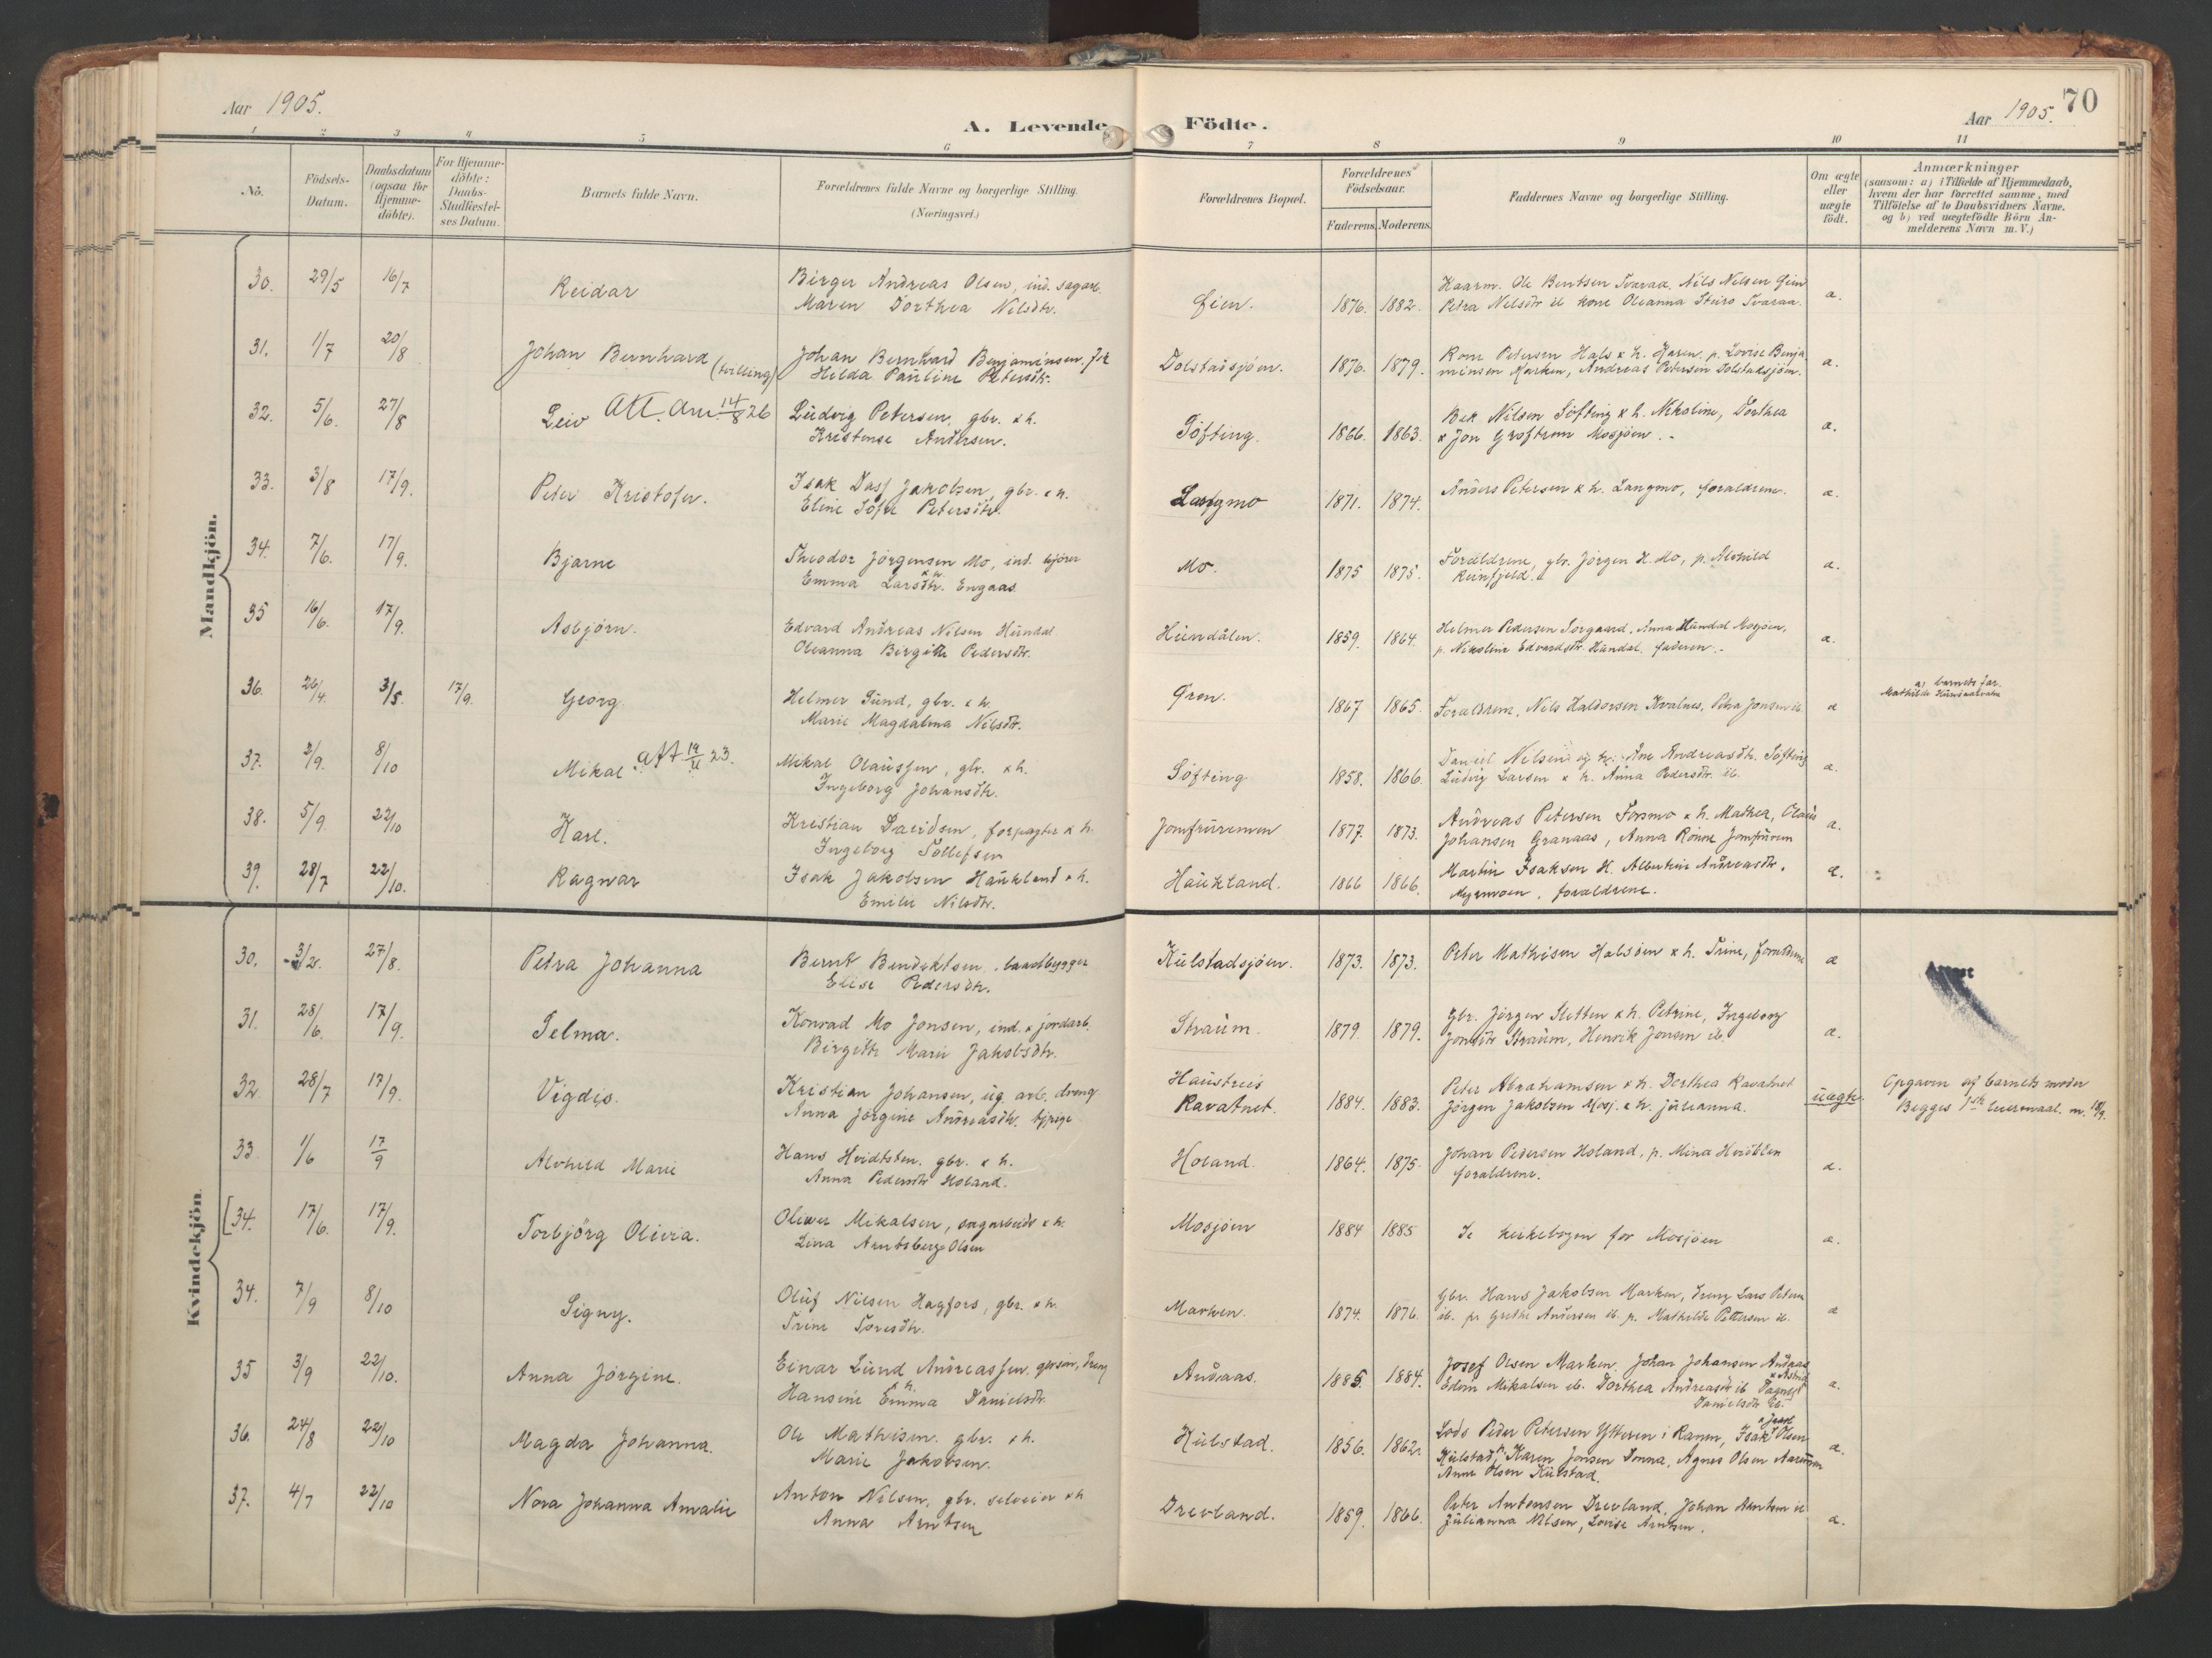 Aar 1905.
A. Levende Födte.
Aar 1905. 70
1 2 3 4 5 6 7 8 9 10 11
Nö.
Födsels-Datum.
Daabsdatum (ogsaa for Hjemme-döbte).
For Hjemme-döbte: Daabs-Stadfæstel-ses Datum.
Barnets fulde Navn.
Forældrenes fulde Navne og borgerlige Stilling. (Næringsvei.)
Forældrenes Bopæl.
Forældrenes Födselsaar.
Faderens. Moderens.
Faddernes Navne og borgerlige Stilling.
Om ægte eller uægte födt.
Anmærkninger
(saasom: a) i Tilfælde af Hjemmedaab,
hvem der har forrettet samme, med
Tilföielse af to Daabsvidners Navne.
og b) ved uægtefödte Börn An-
melderens Navn m. V.)
Mandkjön.
30. 29/5 16/7 Reidar Birger Andreas Olsen, ind. sagarb. 1876. 1882. a.
Maren Dorthea Nilsdtr.
Haarm. Ole Bentsen Svaraa, Nils Nilsen
Petra Nilsdtr ib kone Oleanna Svaraa.
31. 1/7 20/8 Johan Bernhard (tvilling) Johan Bernhard Benjaminsen, Dolstadsjöen. 1876. 1879. a.
Hilda Pauline Petersdtr.
Petersen Hals & h. Karen, p. Lovise Benja-
minsen Marken, Andreas Petersen Dolstadsjöen.
32. 5/6. 27/8 Leiv Att. 14/8 26 Ludvig Petersen, gbr. & h. Söfting. 1866. 1863. a.
Kristense Andersen.
Nilsen Söfting & h. Nikoline, Dorthea
& Jon Mosjöen.
33. 3/8 17/9. Peter Kristofer. Isak Dass Jakobsen, gbr. & h. Langmo 1871. 1874. a.
Eline Sofie Petersdtr.
Anders Petersen & h. Langmo, forældrene.
34. 7/6. 17/9. Bjarne Theodor Jörgensen Mo, ind. Mo. 1875 1875. a.
Emma Larsdtr. Engaas.
Forældrene, gbr. Jörgen H. Mo, p. Alvhild
Reinfjeld.
35 16/6. 17/9. Asbjörn. Edvard Andreas Nilsen Hundal Hundålen. 1859. 1864. a.
Oleanna Birgitte Pedersdtr.
Helmer Pedersen Sörgaard, Anna Hundal Mosjöen,
p. Nikoline Edvardsdtr. Hundal, faderen.
36. 26/4. 3/5. 17/9. Georg Helmer Sund, gbr. & h. Gren. 1867 1865. a
Marie Magdalena Nilsdtr.
Forældrene, Nils Haldorsen Kvalnes, Petra Jonsen ib.
a) barnets far.
Mathilde
37. 2/9. 8/10 Mikal att 19/11 23. Mikal Olaussen, gbr. & h. Söfting 1858. 1866. a.
Ingeborg Johansdtr.
Daniel Nilsen og h. Ane Andreasdtr. Söfting
Ludvig Larsen & h. Anna Pedersdtr. ib.
38. 5/9. 22/10 Karl. Kristian Davidsen, forpagter & h. Jomfruremen 1877. 1873. a.
Ingeborg Tollefsen
Andreas Petersen Forsmo & h. Mathea, Olaus
Johansen Granaas, Anna
39. 28/7 22/10. Ragnar Isak Jakobsen Haukland & h. Haukland. 1866 1866. a.
Emilie Nilsdtr.
Martin Isaksen H. Albertine Andreasdtr.
Myrmoen, forældrene.
Kvindekjön.
30. 3/2. 27/8. Petra Johanna Bernt Bendiktsen, baadbygger Kulstadsjöen. 1873. 1873. a
Elise Pedersdtr.
Peter Mathisen Halsöen & h. Trine, forældrene
31. 28/6. 17/9. Selma. Konrad Mo Jonsen, ind. & jordarb. Straum. 1879. 1879. a.
Birgitte Marie Jakobsdtr.
Gbr. Jörgen Sletten & h. Petrine, Ingeborg
Jonsdtr Straum, Henrik Jonsen ib.
32. 28/7 17/9. Vigdis. Kristian Johansen, ug. arb. dreng Haustreis 1884. 1883. uægte.
Anna Jörgine Andreasdtr. tjpige Ravatnet.
Peter Abrahamsen & h. Dorthea Ravatnet
Jörgen Jakobsen Mosj. & h. Julianna.
Opgaven af barnets moder
Begges 1ste leiermaal.
33 1/6 17/9 Alvhild Marie Hans Hvidtsten. gbr. & h. Holand. 1864. 1875. a.
Anna Pedersdtr Holand.
Johan Pedersen Holand, p. Mina
forældrene.
[34. 17/6. 17/9. Torbjörg Olivia. Oliver Mikalsen, sagarbeider & h. Mosjöen 1884 1885 a.
Lina Arntsberg Olsen
Se kirkebogen for Mosjöen
34. 7/9 8/10 Signy. Oluf Nilsen Hagfors, gbr. & h. Marken. 1874. 1876. a
Trine Toresdtr.
Gbr. Hans Jakobsen Marken, dreng Lars Petersen
ib. p. Grethe Andersen ib. p. Mathilde Pettersen ib.
35 3/9 22/10. Anna Jörgine. Einar Lund Andreassen, Andaas. 1885. 1884. a.
Hansine Emma Danielsdtr.
Josef Olsen Marken, Johan Johansen Andaas
Edvin Mikalsen ib. Dorthea Andreasdtr ib
Danielsdtr ib.
36. 24/8 22/10 Magda Johanna. Ole Mathisen. gbr. & h. Kulstad. 1856. 1862. a.
Marie Jakobsen.
Lods Peder Petersen Ytteren i Ranen, Isak Olsen
Kulstad, Karen Jonsen Dönna, Agnes Olsen
Anne Olsen Kulstad.
37. 4/7 22/10 Nora Johanna Amalie Anton Nilsen, gbr. selveier & h Drevland. 1859. 1866. a.
Anna Arntsen
Peter Antonsen Drevland, Johan Arntsen ib
Julianna Nilsen, Lovise Arntsen.